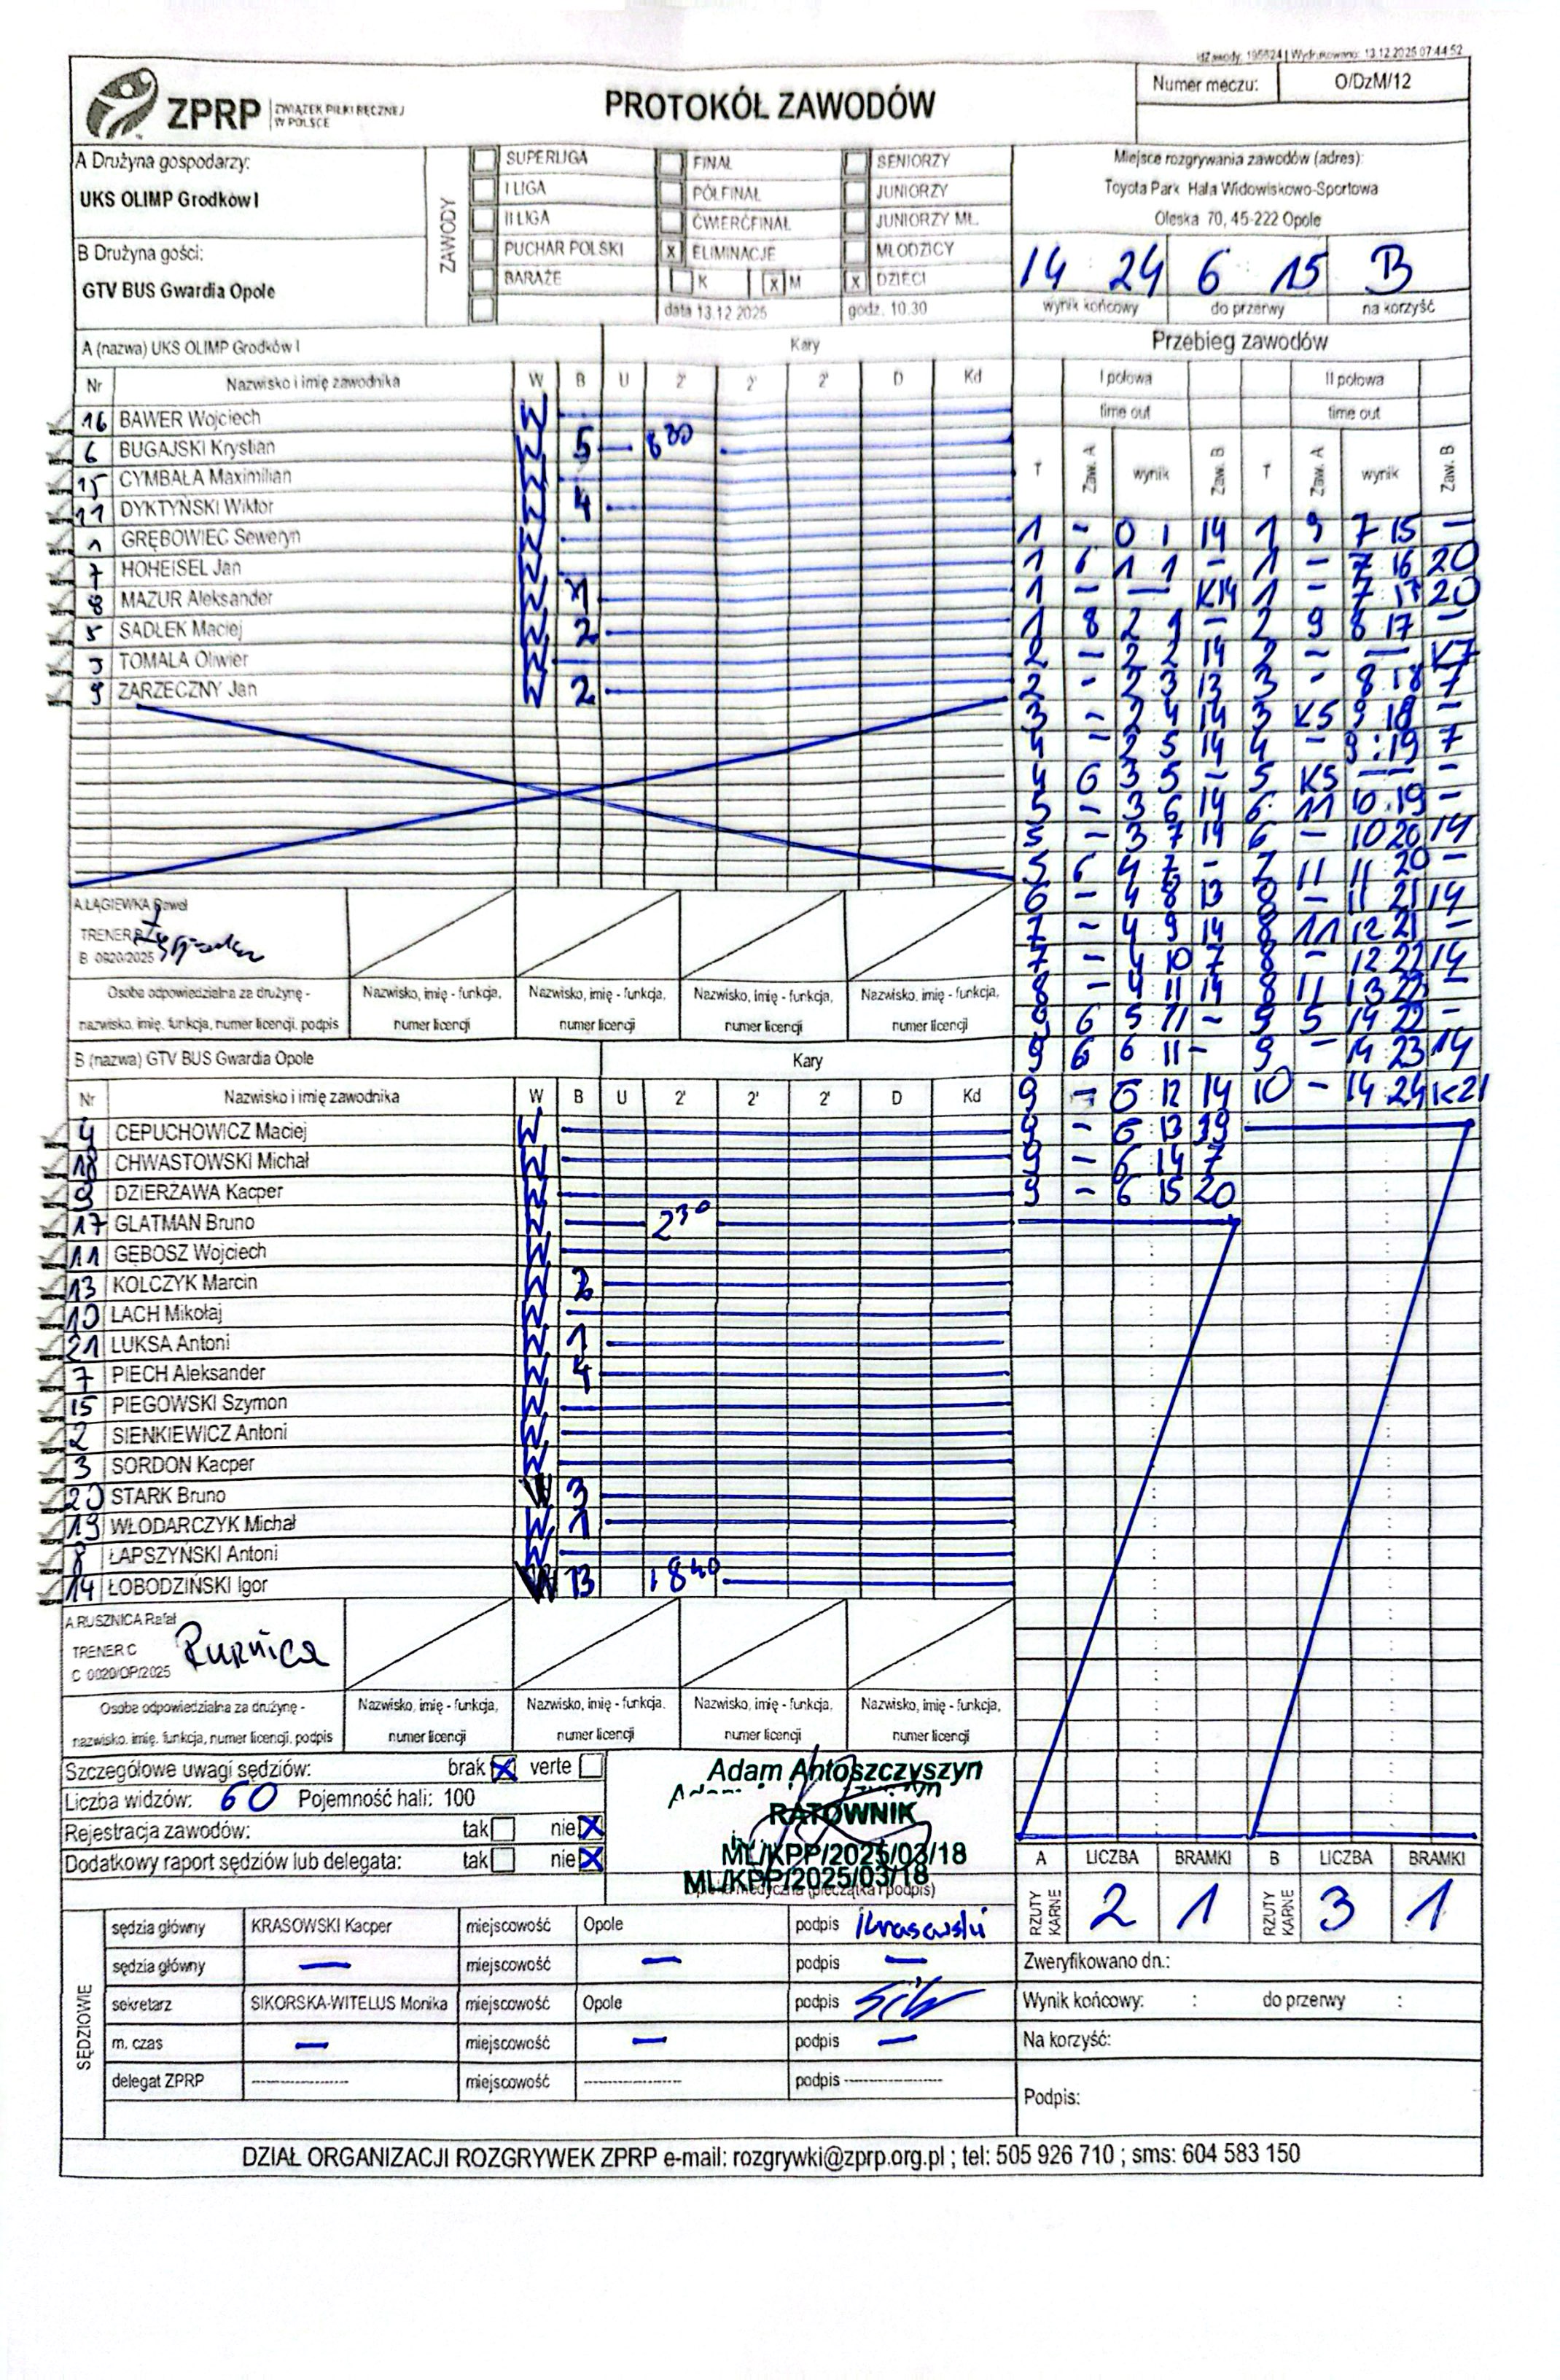 idZawody: 195524 | Wydrukowano: 13.12.2025 07:44:52
ZPRP ZWIĄZEK PIŁKI RĘCZNEJ W POLSCE
PROTOKÓŁ ZAWODÓW
Numer meczu: O/DzM/12
A Drużyna gospodarzy:
UKS OLIMP Grodków I
B Drużyna gości:
GTV BUS Gwardia Opole
ZAWODY
SUPERLIGA
I LIGA
II LIGA
PUCHAR POLSKI
BARAŻE
FINAŁ
PÓŁFINAŁ
ĆWIERĆFINAŁ
x ELIMINACJE
K x M
data 13.12.2025
SENIORZY
JUNIORZY
JUNIORZY MŁ.
MŁODZICY
x DZIECI
godz. 10.30
Miejsce rozgrywania zawodów (adres):
Toyota Park Hala Widowiskowo-Sportowa
Oleska 70, 45-222 Opole
14 24 6 : 15 B
wynik końcowy do przerwy na korzyść
A (nazwa) UKS OLIMP Grodków I Kary
Nr Nazwisko i imię zawodnika W B U 2' 2' 2' D Kd
16 BAWER Wojciech W
6 BUGAJSKI Krystian W 5 — 8 30
15 CYMBAŁA Maximilian W
11 DYKTYŃSKI Wiktor W 4
1 GRĘBOWIEC Seweryn W
7 HOHEISEL Jan W
8 MAZUR Aleksander W 1
5 SADLEK Maciej W 2
3 TOMALA Oliwier W
9 ZARZECZNY Jan W 2
A ŁĄGIEWKA Paweł
TRENER B
B 0820/2025
Osoba odpowiedzialna za drużynę -
nazwisko, imię, funkcja, numer licencji, podpis
Nazwisko, imię - funkcja, numer licencji
Nazwisko, imię - funkcja, numer licencji
Nazwisko, imię - funkcja, numer licencji
Nazwisko, imię - funkcja, numer licencji
B (nazwa) GTV BUS Gwardia Opole Kary
Nr Nazwisko i imię zawodnika W B U 2' 2' 2' D Kd
4 CEPUCHOWICZ Maciej W
18 CHWASTOWSKI Michał W
9 DZIERŻAWA Kacper W
17 GLATMAN Bruno W 2 30
11 GĘBOSZ Wojciech W
13 KOLCZYK Marcin W 2
10 LACH Mikołaj W
21 LUKSA Antoni W 1
7 PIECH Aleksander W 4
15 PIEGOWSKI Szymon W
2 SIENKIEWICZ Antoni W
3 SORDON Kacper W
20 STARK Bruno W 3
19 WŁODARCZYK Michał W 1
8 ŁAPSZYŃSKI Antoni W
14 ŁOBODZIŃSKI Igor W 13 18 40
A RUSZNICA Rafał
TRENER C
C 0020/OP/2025
Rusznica
Osoba odpowiedzialna za drużynę -
nazwisko, imię, funkcja, numer licencji, podpis
Nazwisko, imię - funkcja, numer licencji
Nazwisko, imię - funkcja, numer licencji
Nazwisko, imię - funkcja, numer licencji
Nazwisko, imię - funkcja, numer licencji
Przebieg zawodów
I połowa II połowa
time out time out
T Zaw. A wynik Zaw. B T Zaw. A wynik Zaw. B
1 - 0 1 14 1 9 7 15 -
1 6 1 1 - 1 - 7 16 20
1 - — K14 1 - 7 17 20
1 8 2 1 - 2 9 8 17 -
2 - 2 2 14 2 - — K7
2 - 2 3 13 3 - 8 18 7
3 - 2 4 14 3 K5 9 18 -
4 - 2 5 14 4 - 9 : 19 7
4 6 3 5 - 5 K5 — -
5 - 3 6 14 6 11 10 19 -
5 - 3 7 14 6 - 10 20 14
5 6 4 7 - 7 11 11 20 -
6 - 4 8 13 8 - 11 21 14
7 - 4 9 14 8 11 12 21 -
7 - 4 10 7 8 - 12 22 14
8 - 4 11 14 8 11 13 22 -
8 6 5 11 - 9 5 14 22 -
9 6 6 11 - 9 - 14 23 14
9 - 6 12 14 10 - 14 24 K21
9 - 6 13 19
9 - 6 14 7
9 - 6 15 20
Szczegółowe uwagi sędziów: brak X verte
Liczba widzów: 60 Pojemność hali: 100
Rejestracja zawodów: tak nie X
Dodatkowy raport sędziów lub delegata: tak nie X
Adam Antoszczyszyn
RATOWNIK
ML/KPP/2025/03/18
ML/KPP/2025/03/18
Opieka medyczna (pieczątka i podpis)
A LICZBA BRAMKI B LICZBA BRAMKI
RZUTY KARNE 2 1 RZUTY KARNE 3 1
SĘDZIOWIE
sędzia główny KRASOWSKI Kacper miejscowość Opole podpis Krasowski
sędzia główny — miejscowość — podpis —
sekretarz SIKORSKA-WITELUS Monika miejscowość Opole podpis
m. czas — miejscowość — podpis —
delegat ZPRP ---------- miejscowość ---------- podpis ----------
Zweryfikowano dn.:
Wynik końcowy: : do przerwy :
Na korzyść:
Podpis:
DZIAŁ ORGANIZACJI ROZGRYWEK ZPRP e-mail: rozgrywki@zprp.org.pl ; tel: 505 926 710 ; sms: 604 583 150